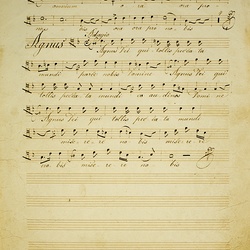 omnium o ra ora pro
no bis ora ora pro no bis
Adagio
Agnus Agnus Dei qui tollis peccata
mundi parce nobis Domine Agnus Dei qui
tollis peccata mundi ex au di nos Domi ne
Agnus Dei qui tollis pec ca ta mundi
mise re re no bis mise re re
no bis mise re re no bis